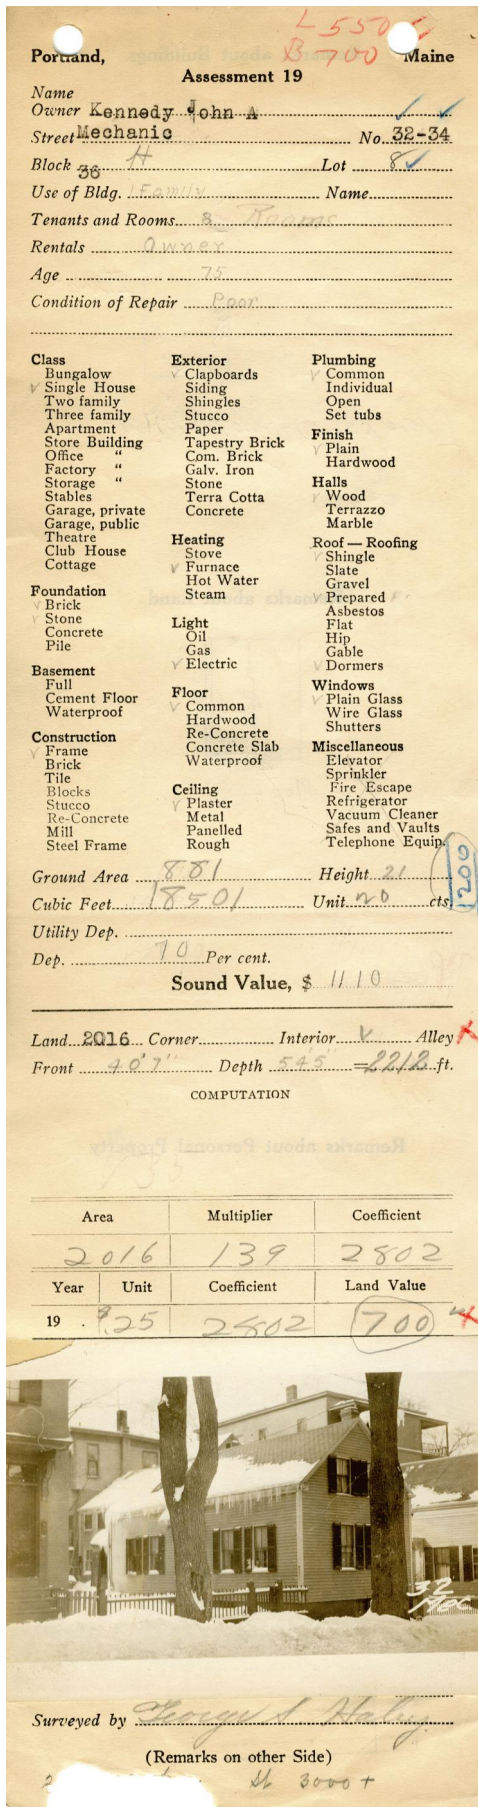 L 550
B 700
Portland, Maine
Assessment 19
Name
Owner Kennedy John A
Street Mechanic No. 32-34
Block 36 H Lot 8
Use of Bldg. 1 Family Name
Tenants and Rooms 8 Rooms
Rentals Owner
Age 75
Condition of Repair Poor
Class
Bungalow
Single House
Two family
Three family
Apartment
Store Building
Office "
Factory "
Storage "
Stables
Garage, private
Garage, public
Theatre
Club House
Cottage
Foundation
Brick
Stone
Concrete
Pile
Basement
Full
Cement Floor
Waterproof
Construction
Frame
Brick
Tile
Blocks
Stucco
Re-Concrete
Mill
Steel Frame
Exterior
Clapboards
Siding
Shingles
Stucco
Paper
Tapestry Brick
Com. Brick
Galv. Iron
Stone
Terra Cotta
Concrete
Heating
Stove
Furnace
Hot Water
Steam
Light
Oil
Gas
Electric
Floor
Common
Hardwood
Re-Concrete
Concrete Slab
Waterproof
Ceiling
Plaster
Metal
Panelled
Rough
Plumbing
Common
Individual
Open
Set tubs
Finish
Plain
Hardwood
Halls
Wood
Terrazzo
Marble
Roof — Roofing
Shingle
Slate
Gravel
Prepared
Asbestos
Flat
Hip
Gable
Dormers
Windows
Plain Glass
Wire Glass
Shutters
Miscellaneous
Elevator
Sprinkler
Fire Escape
Refrigerator
Vacuum Cleaner
Safes and Vaults
Telephone Equip.
1200
Ground Area 881 Height 21
Cubic Feet 18501 Unit 20 cts.
Utility Dep.
Dep. 70 Per cent.
Sound Value, $ 1110
Land 2016 Corner Interior Alley
Front 40'7" Depth 54'5" =2212 ft.
COMPUTATION
Area Multiplier Coefficient
2016 139 2802
Year Unit Coefficient Land Value
19 . $.25 2802 700
32
Mec
Surveyed by George S Haley
(Remarks on other Side)
St 3000 +